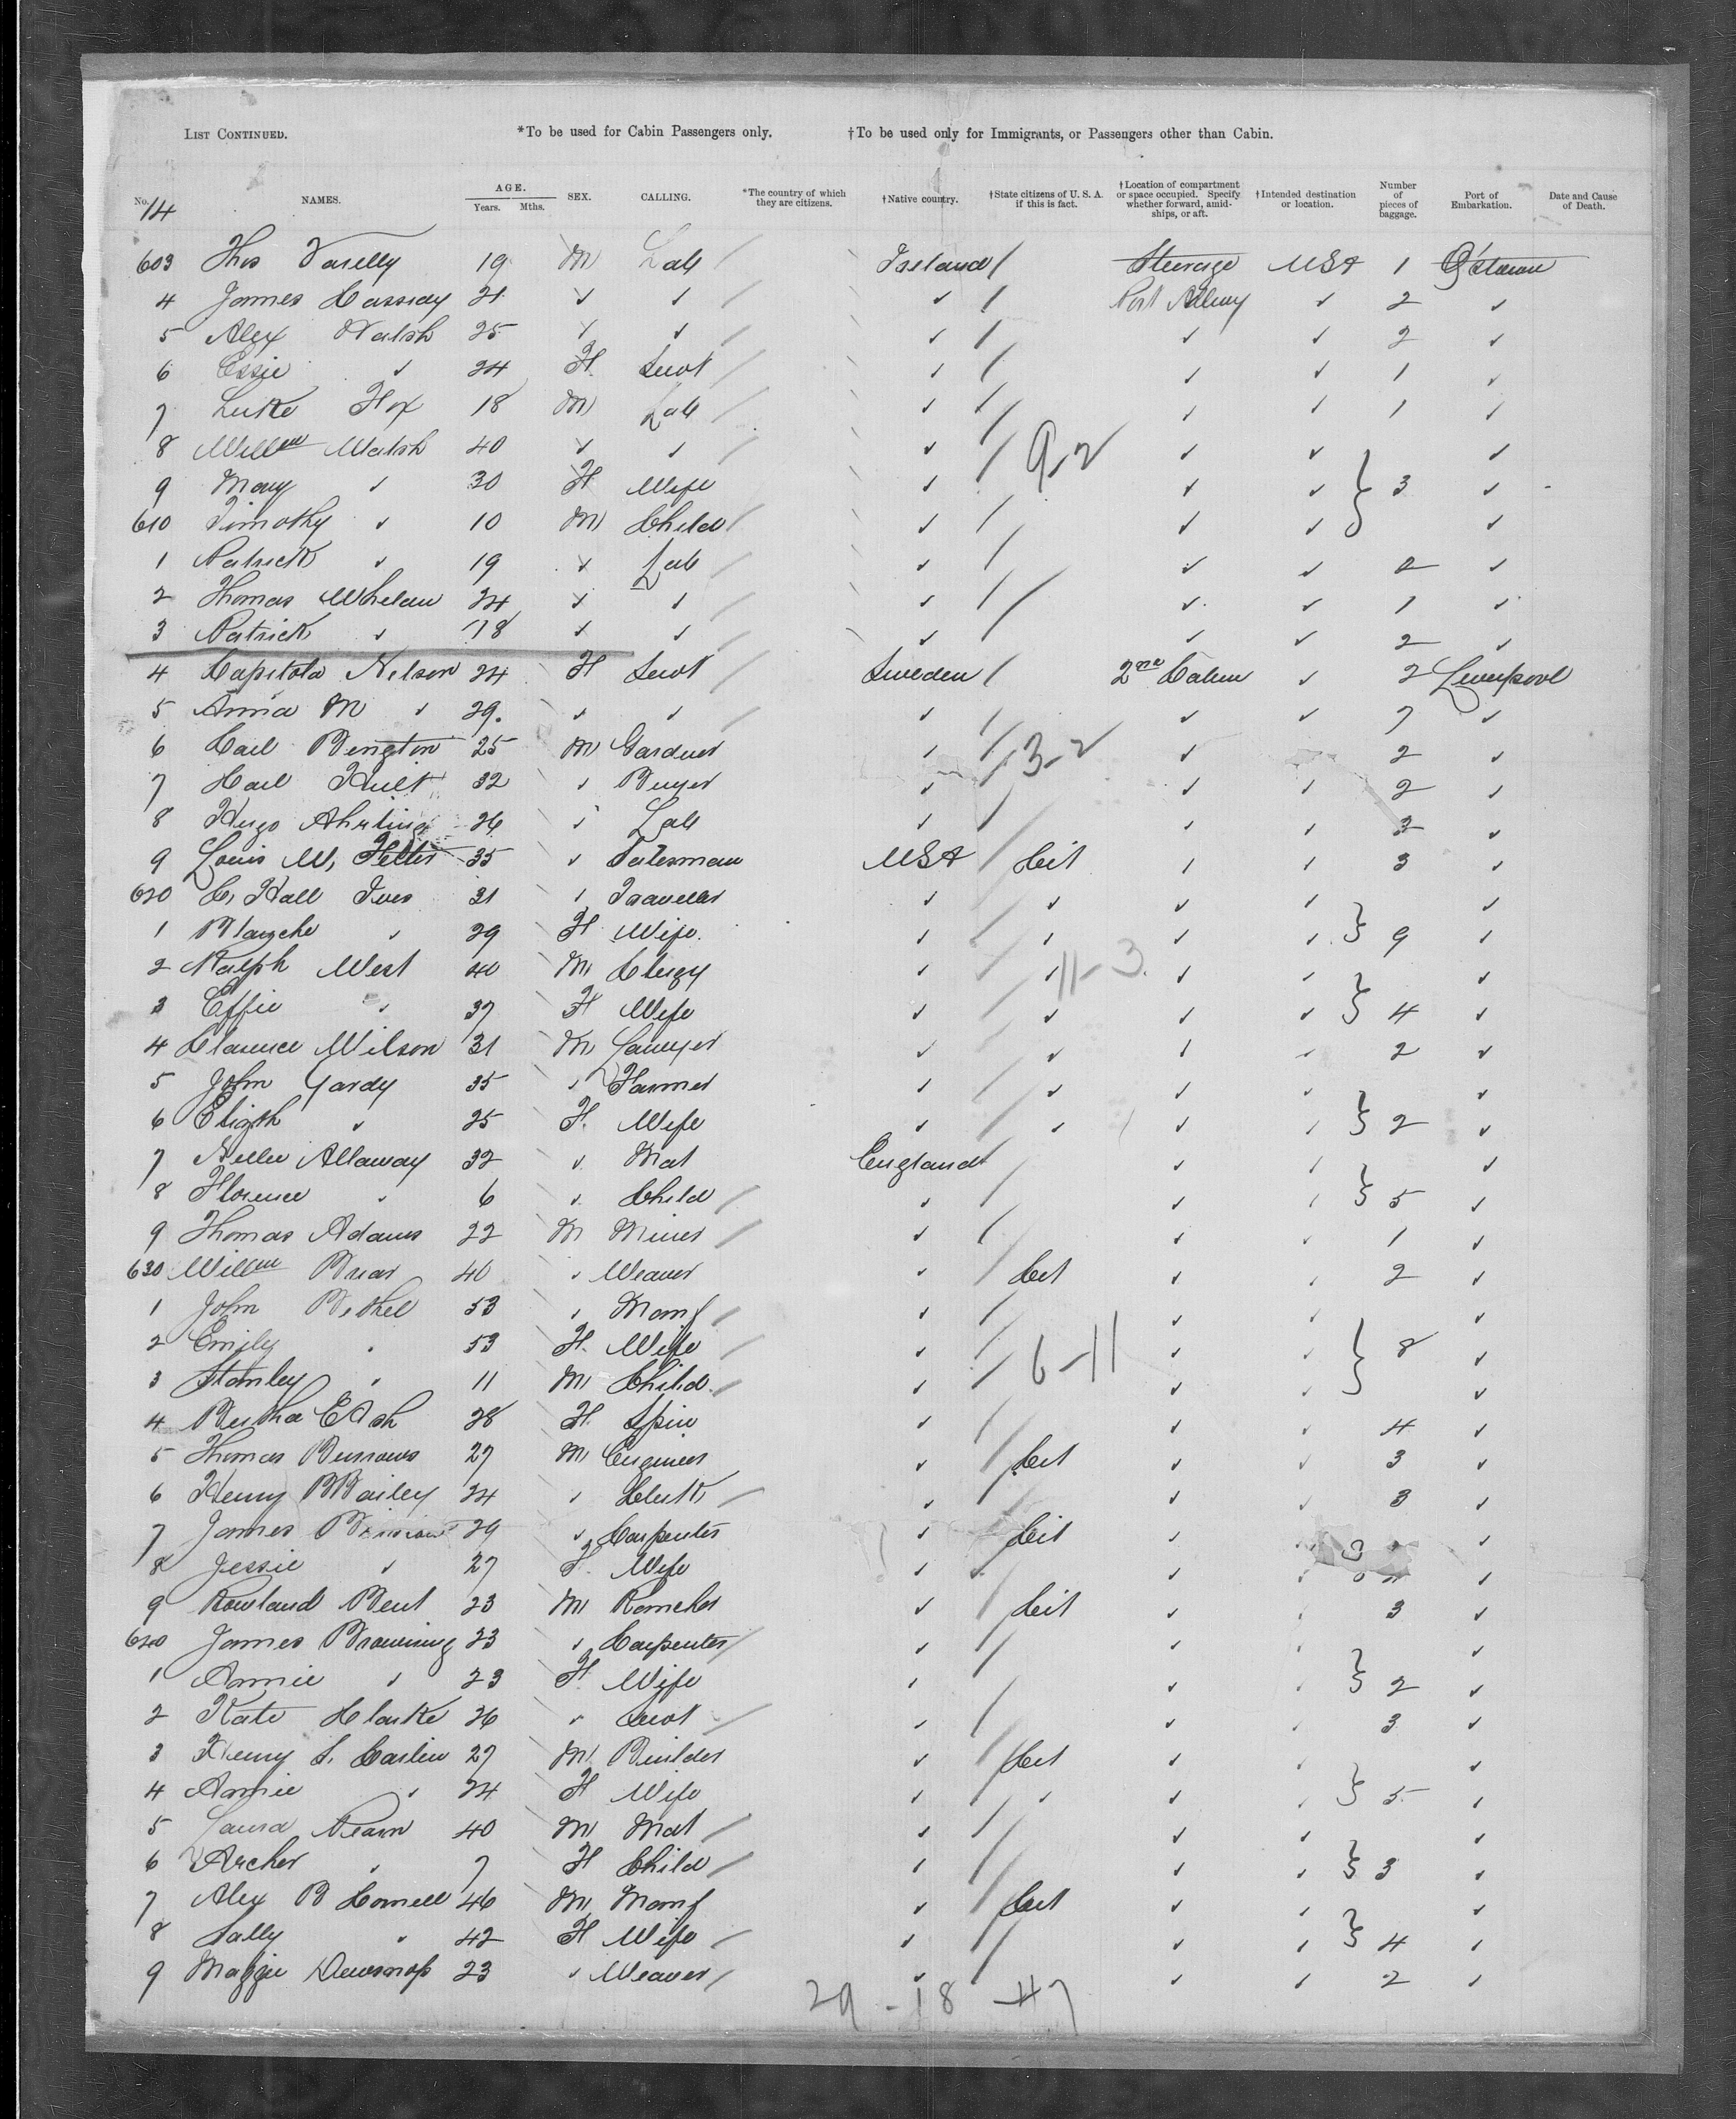 LIST CONTINUED. *To be used for Cabin Passengers only. †To be used only for Immigrants, or Passengers other than Cabin.
No. NAMES. AGE. Years. Mths. SEX. CALLING. *The country of which they are citizens. †Native country. †State citizens of U. S. A. if this is fact. †Location of compartment or space occupied. Specify whether forward, amidships, or aft. †Intended destination or location. Number of pieces of baggage. Port of Embarkation. Date and Cause of Death.
14
603 Thos Varelly 19 M Lab Ireland Steerage USA 1 Q'stown
4 James Cassidy 21 ✓ ✓ ✓ Port Alley ✓ 2 ✓
5 Alex Walsh 25 ✓ ✓ ✓ ✓ ✓ 2 ✓
6 Essie ✓ 24 F Servt ✓ ✓ ✓ 1 ✓
7 Luke Fox 18 M Lab ✓ ✓ ✓ 1 ✓
8 Willm Walsh 40 ✓ ✓ ✓ ✓ ✓ ✓
9-2
9 Mary ✓ 30 F Wife ✓ ✓ ✓ } 3 ✓
610 Timothy ✓ 10 M Child ✓ ✓ ✓ ✓
1 Patrick ✓ 19 ✓ Lab ✓ ✓ ✓ 2 ✓
2 Thomas Whelan 24 ✓ ✓ ✓ ✓ ✓ 1 ✓
3 Patrick ✓ 18 ✓ ✓ ✓ ✓ ✓ 2 ✓
4 Capitola Nelson 24 F Servt Sweden 2nd Cabin ✓ 2 Liverpool
5 Anna M ✓ 29 ✓ ✓ ✓ ✓ ✓ 7 ✓
6 Carl Bengton 25 M Gardner ✓ ✓ 2 ✓
3-2
7 Carl Hult 32 ✓ Buyer ✓ ✓ ✓ 2 ✓
8 Hugo Ahrling 26 ✓ Lab ✓ ✓ ✓ 3 ✓
9 Louis W, Felter 35 ✓ Salesman USA Cit ✓ ✓ 3 ✓
620 C, Hall Ives 31 ✓ Traveller ✓ ✓ ✓ ✓ ✓
1 Blanche ✓ 29 F Wife ✓ ✓ ✓ ✓ } 9 ✓
2 Ralph West 40 M Clergy ✓ ✓ ✓ ✓ ✓
11-3
3 Effie ✓ 37 F Wife ✓ ✓ ✓ ✓ } 4 ✓
4 Clarence Wilson 31 M Lawyer ✓ ✓ ✓ ✓ 2 ✓
5 John Yardy 35 ✓ Farmer ✓ ✓ ✓ ✓ ✓
6 Elizth ✓ 25 F Wife ✓ ✓ ✓ ✓ } 2 ✓
7 Nellie Allaway 32 ✓ Mat England ✓ ✓ ✓
8 Florence ✓ 6 ✓ Child ✓ ✓ ✓ } 5 ✓
9 Thomas Adams 22 M Miner ✓ ✓ ✓ 1 ✓
630 Willm Briar 40 ✓ Weaver ✓ Cit ✓ ✓ 2 ✓
1 John Bethel 53 ✓ Manf ✓ ✓ ✓ ✓
2 Emily ✓ 53 F Wife ✓ ✓ ✓ } 8 ✓
6-11
3 Stanley ✓ 11 M Child ✓ ✓ ✓ ✓
4 Bertha E Ash 28 F Spin ✓ ✓ ✓ 4 ✓
5 Thomas Burrows 27 M Engineer ✓ Cit ✓ ✓ 3 ✓
6 Henry B Bailey 24 ✓ Clerk ✓ ✓ ✓ 3 ✓
7 James 29 ✓ Carpenter ✓ Cit ✓ ✓
8 Jessie ✓ 27 F Wife ✓ ✓ ✓ ✓ ✓
9 Rowland Bent 23 M Rancher ✓ Cit ✓ ✓ 3 ✓
640 James Browning 23 ✓ Carpenter ✓ ✓ ✓ ✓
1 Annie ✓ 23 F Wife ✓ ✓ ✓ } 2 ✓
2 Kate Clarke 26 ✓ Servt ✓ ✓ ✓ 3 ✓
3 Henry S. Carlin 27 M Builder ✓ Cit ✓ ✓ ✓
4 Annie ✓ 24 F Wife ✓ ✓ ✓ ✓ } 5 ✓
5 Laura Nearn 40 M Mat ✓ ✓ ✓ ✓
6 Archer ✓ 7 F Child ✓ ✓ ✓ } 3 ✓
7 Alex B Cornell 46 M Manf ✓ Cit ✓ ✓ ✓
8 Sally ✓ 42 F Wife ✓ ✓ ✓ } 4 ✓
9 Maggie Dewsnop 23 ✓ Weaver ✓ ✓ ✓ 2 ✓
29 - 18 - 47